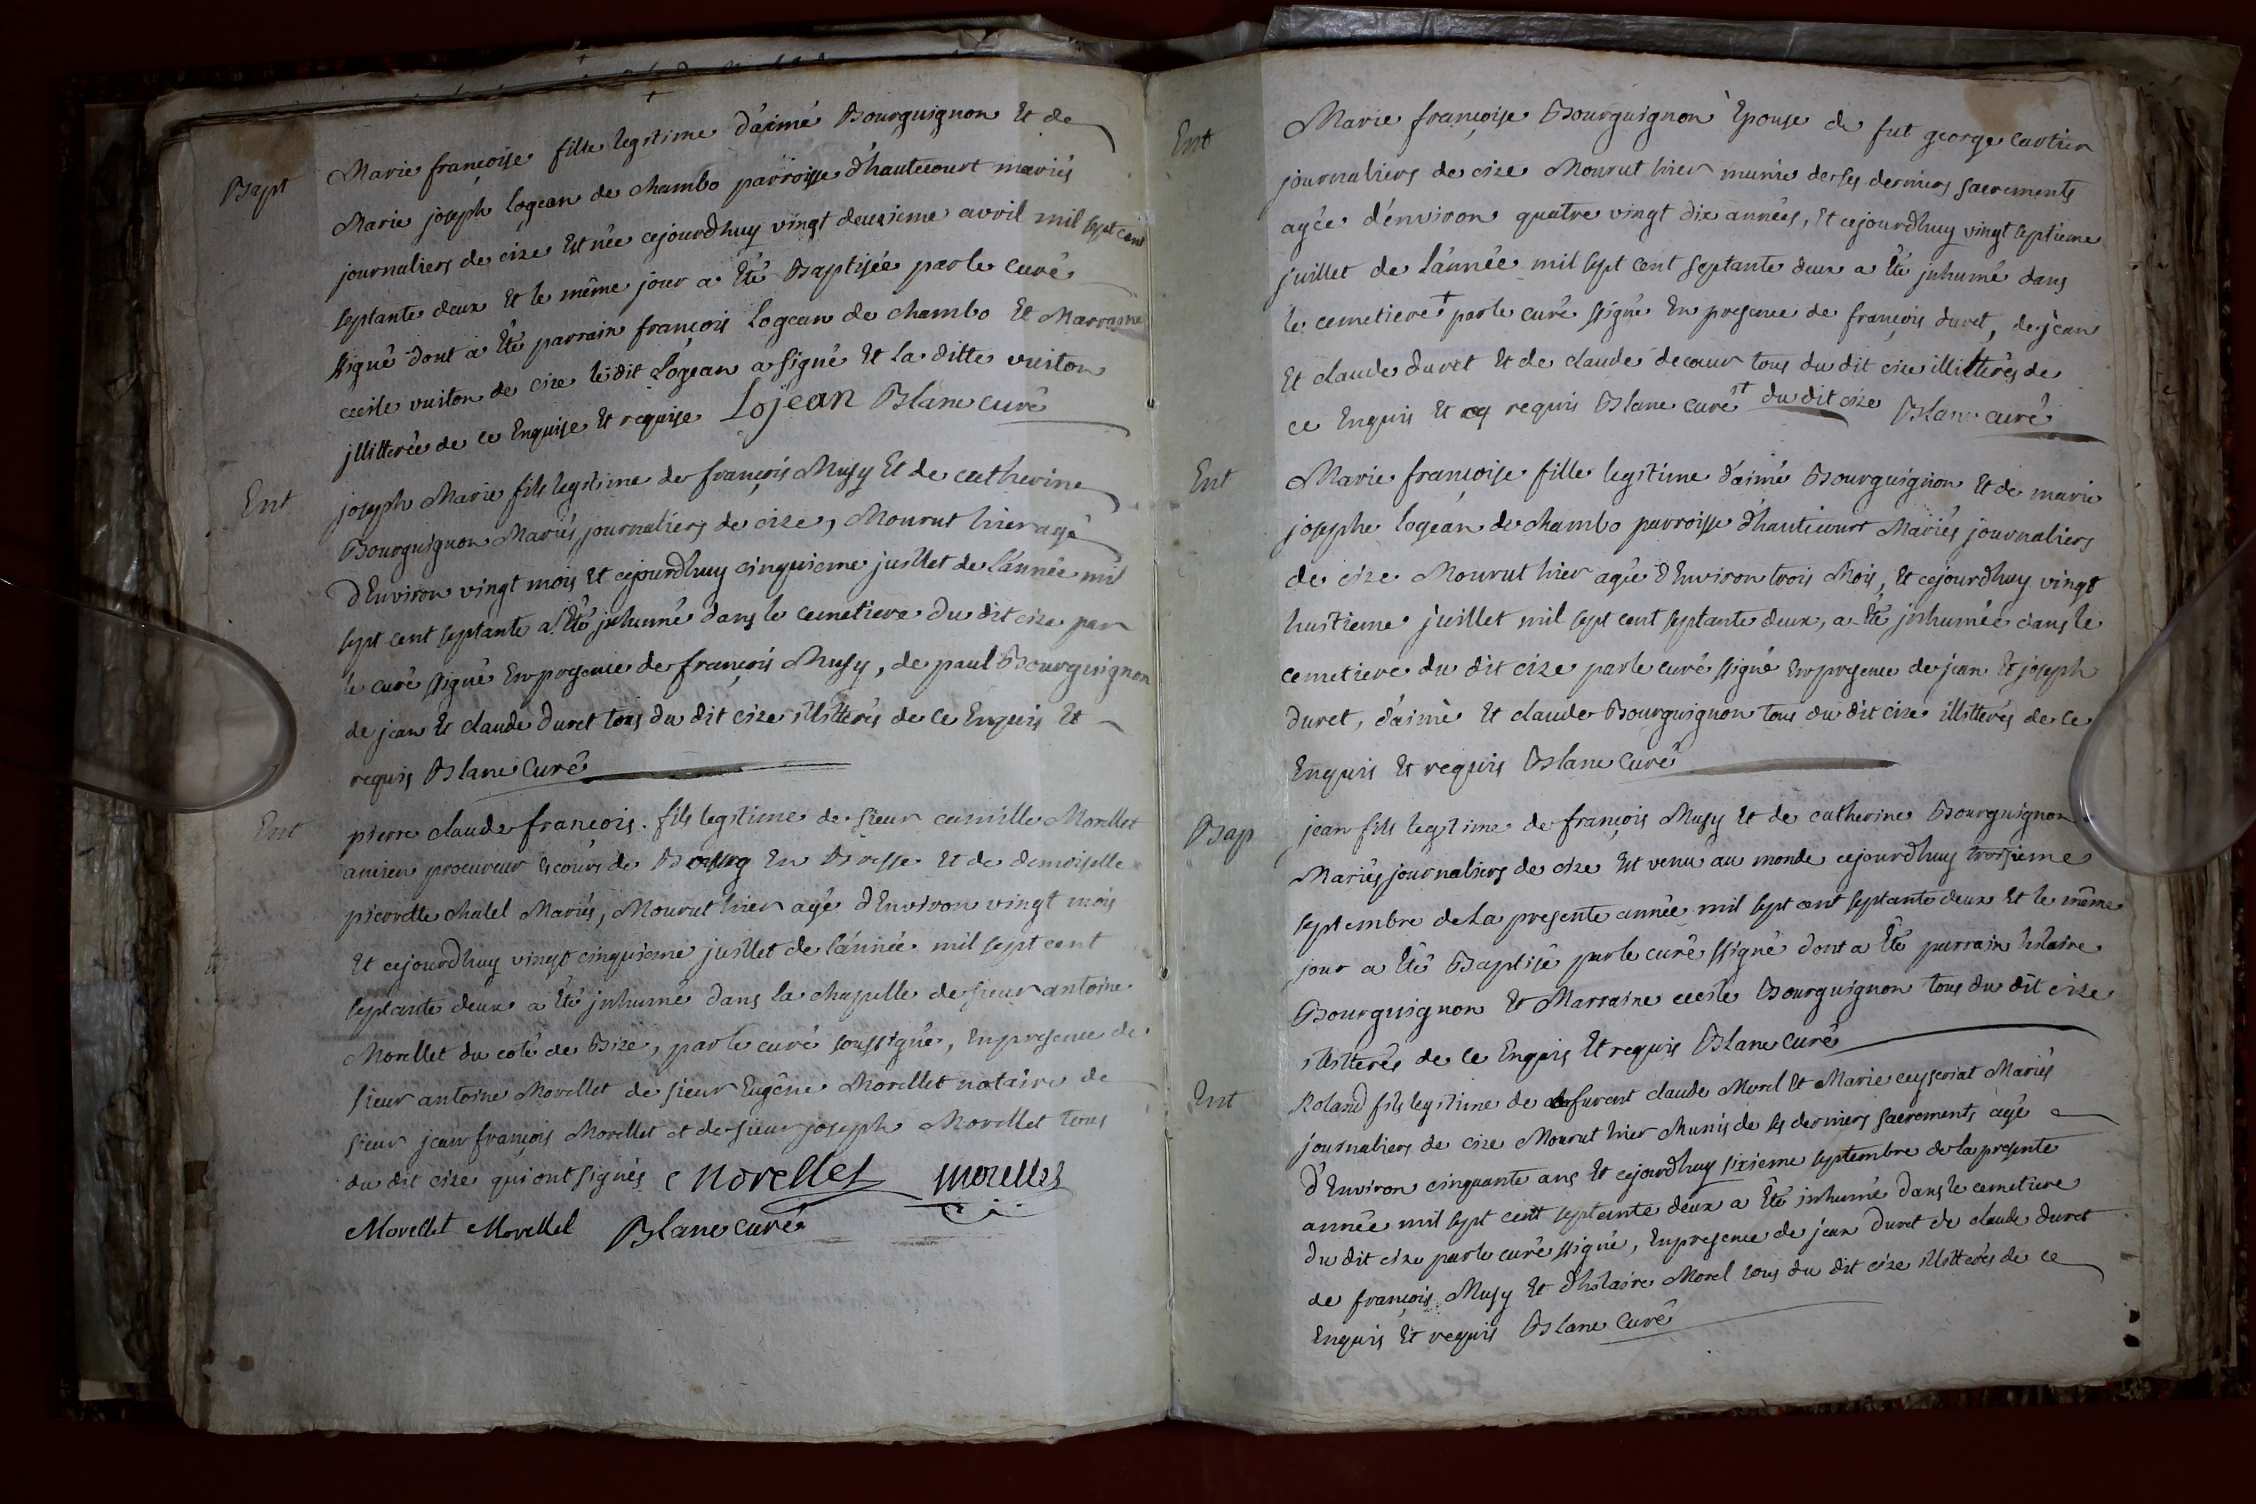 Bapt
Marie françoise fille legitime d'aimé Bourguignon Et de
Marie joseph logean de chambo parroisse d'hautecourt mariés
journaliers de cize Est née cejourdhuy vingt deuxieme avril mil sept cent
septante deux Et le même jour a Eté Baptisée par le curé
ssigné dont a Eté parrain françois logean de chambo Et Marraine
cecile vuiton de cize le dit Logean a signé Et la ditte vuiton
jllitterée de ce Enquise Et requise Lojean Blanc curé
Ent
joseph Marie fils legitime de françois Musy Et de catherine
Bourguignon Mariés journaliers de cize, Mourut hier agé
d'Environ vingt mois Et cejourdhuy cinquieme juillet de l'année mil
sept cent septante a Eté jnhumé dans le cemetiere du dit cize par
le curé ssigné En presence de françois Musy, de paul Bourguignon
de jean Et claude duret tous du dit cize illitterés de ce Enquis Et
requis Blanc Curé
Ent
pierre claude françois fils legitime de sieur camille Morellet
ancien procureur es cours de Bourg En Bresse Et de demoiselle
pierrette chalel Mariés, Mourut hier agé d'Environ vingt mois
Et cejourdhuy vingt cinquieme juillet de l'année mil sept cent
septante deux a Eté jnhumé dans la chapelle de sieur antoine
Morellet du coté de Bize, par le curé soussigné, En presence de
sieur antoine Morellet de sieur Eugêne Morellet notaire de
sieur jean françois Morellet et de sieur joseph Morellet tous
du dit cize qui ont signés Morellet Morellet
Morellet Morellet Blanc curé
Ent
Marie françoise Bourguignon Epouse de fut george cartier
journaliers de cize Mourut hier munie de ses derniers sacrements
agée d'environ quatre vingt dix années, Et cejourdhuy vingt septieme
juillet de l'année mil sept cent septante deux a Eté jnhumé dans
le cemetiere + par le curé ssigné En presence de françois duret, de jean
Et claude duret Et de claude decoeur tous du dit cize illitterés de
ce Enquis Et requis Blanc curé + du dit cize Blanc curé
Ent
Marie françoise fille legitime d'aimé Bourguignon Et de marie
josephe logean de chambo parroisse d'hautecourt Mariés journaliers
de cize Mourut hier agée d'Environ trois Mois, Et cejourdhuy vingt
huitieme juillet mil sept cent septante deux, a Eté jnhumée dans le
cemetiere du dit cize par le curé ssigné En presence de jean Et joseph
duret, d'aimé Et claude Bourguignon tous du dit cize illitterés de ce
Enquis Et requis Blanc Curé
Bap
jean fils legitime de françois Musy Et de catherine Bourguignon
Mariés journaliers de cize Est venu au monde cejourdhuy troisieme
septembre de la presente année mil sept cent septante deux Et le même
jour a Eté Baptisé par le curé ssigné dont a Eté parrain hilaire
Bourguignon Et Marraine cecile Bourguignon tous du dit cize
illitterés de ce Enquis Et requis Blanc Curé
Ent
Roland fils legitime de furent claude Morel Et Marie ceyseriat Mariés
journaliers de cize Mourut hier Munis de ses derniers sacrements agé
d'Environ cinquante ans Et cejourdhuy sixieme septembre de la presente
année mil sept cent septante deux a Eté jnhumé dans le cemetiere
du dit cize par le curé ssigné, En presence de jean duret de claude duret
de françois Musy Et d'hilaire Morel tous du dit cize illitterés de ce
Enquis Et requis Blanc Curé